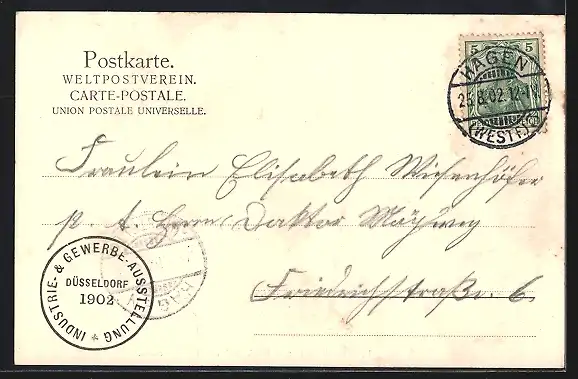 Postkarte.
WELTPOSTVEREIN.
CARTE-POSTALE.
UNION POSTALE UNIVERSELLE.
5 5
HAGEN
25.8.02.12-1
(WESTF.)
Fräulein Elisabeth Wiesenhöfer
p. A. Herrn Doktor
Friedrichstraße. 6
INDUSTRIE- & GEWERBE-AUSSTELLUNG
DÜSSELDORF
1902
HAG